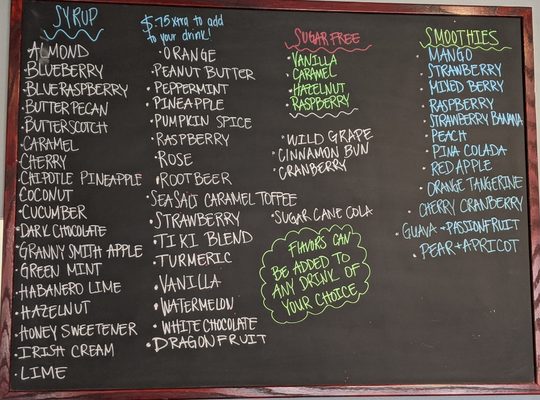 SYRUP
ALMOND
·BLUEBERRY
·BLUERASPBERRY
·BUTTER PECAN
·BUTTERSCOTCH
·CARAMEL
·CHERRY
·CHIPOTLE PINEAPPLE
·COCONUT
·CUCUMBER
·DARK CHOCOLATE
·GRANNY SMITH APPLE
·GREEN MINT
·HABANERO LIME
·HAZELNUT
·HONEY SWEETENER
·IRISH CREAM
·LIME
$.75 xtra to add
to your drink!
·ORANGE
·PEANUT BUTTER
·PEPPERMINT
·PINEAPPLE
·PUMPKIN SPICE
·RASPBERRY
·ROSE
·ROOTBEER
·SEA SALT CARAMEL TOFFEE
·STRAWBERRY
·TIKI BLEND
·TURMERIC
·VANILLA
·WATERMELON
·WHITE CHOCOLATE
·DRAGONFRUIT
SUGAR FREE
·VANILLA
·CARAMEL
·HAZELNUT
·RASPBERRY
·WILD GRAPE
·CINNAMON BUN
·CRANBERRY
·SUGAR CANE COLA
FLAVORS CAN
BE ADDED TO
ANY DRINK OF
YOUR CHOICE
SMOOTHIES
·MANGO
·STRAWBERRY
·MIXED BERRY
·RASPBERRY
·STRAWBERRY BANANA
·PEACH
·PINA COLADA
·RED APPLE
·ORANGE TANGERINE
·CHERRY CRANBERRY
·GUAVA + PASSIONFRUIT
·PEAR + APRICOT